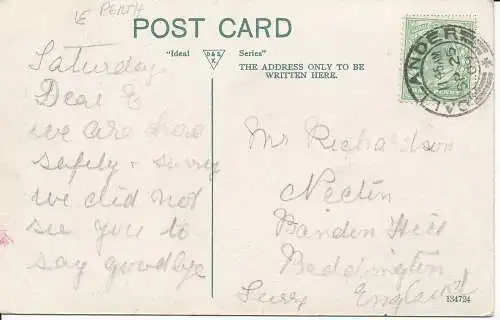 PERTH
POST CARD
"Ideal Series"
D & S
K
THE ADDRESS ONLY TO BE
WRITTEN HERE.
CALLANDER
11 AM
SP 25
Saturday
Dear E
we are here
safely & sorry
we did not
see you to
say goodbye
Mr Richardson
Nectin
Bandon Hill
Beddington
Surry England
134724